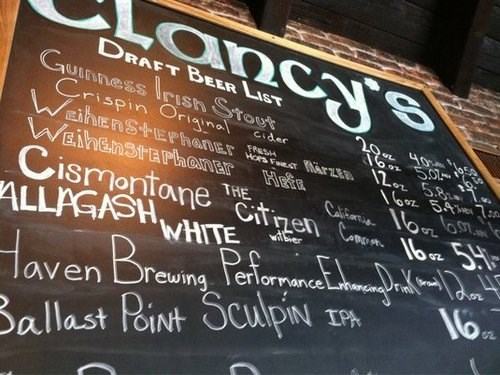 CLancy's
DRAFT BEER LIST
Guinness Irish Stout 20 oz
Crispin Original cider 16 oz 5.0%
WeihenStephaner FRESH HOPS FOREST Märzen 12 oz 5.8%
WeihenStephaner Hefe 16 oz
Cismontane THE Citizen California Common 16 oz
ALLAGASH WHITE witbier 16 oz
Haven Brewing Performance Enhancing Drink 12 oz
Ballast Point Sculpin IPA 16 oz